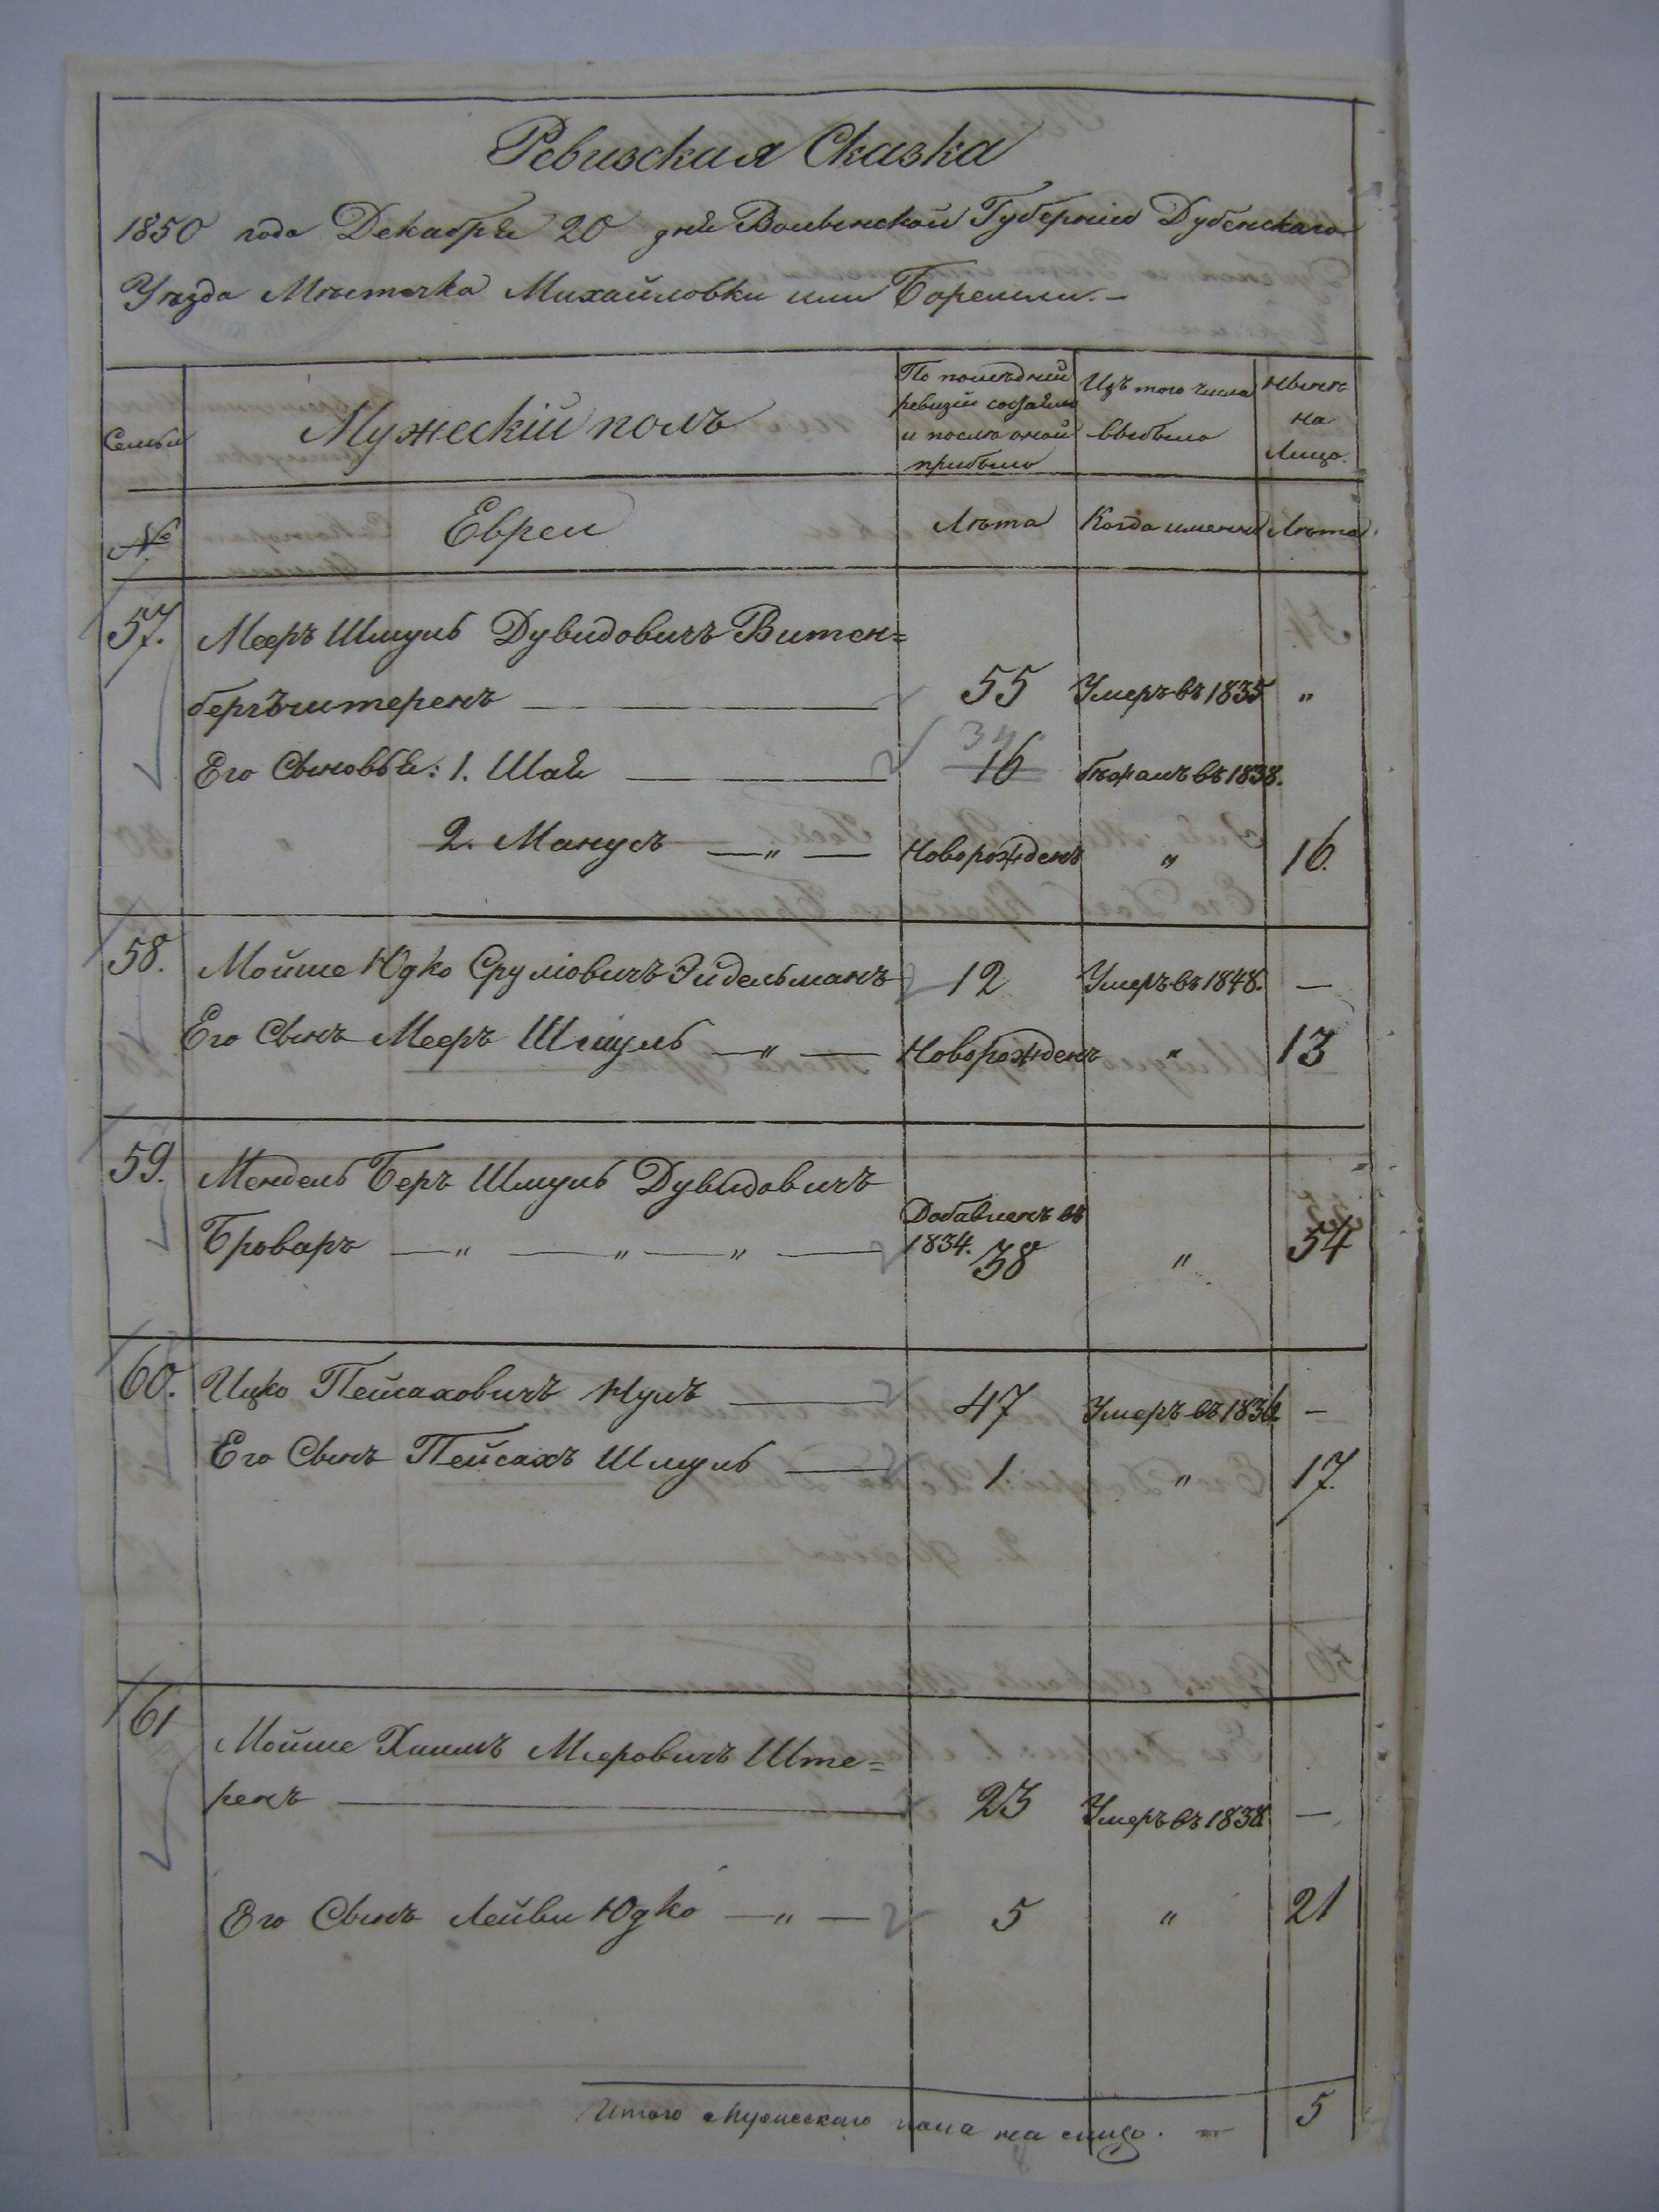 Ревизская Сказка
1850 года Декабря 20 дня Волынской Губерніи Дубенскаго
Уѣзда Мѣстечка Михайловки или Боремли.-
Семьи
Мужескій полъ
По послѣдней ревизіи состояло и послѣ оной прибыло
Изъ того числа выбыло
Нынѣ на Лицо.
№
Евреи
Лѣта
Когда именно
Лѣта
57. Мееръ Шмуль Дувидовичъ Витен=
бергъ 55 Умеръ въ 1835 "
Его Сыновья: 1. Шая 34 16 бѣжалъ въ 1838.
2. Манусъ —"— Новорожденъ " 16.
58. Мойше Юдко Сруліовичъ Эйдельманъ 12 Умеръ въ 1848. —
Его Сынъ Мееръ Шмуль —"— Новорожденъ " 13
59. Мендель Беръ Шмуль Дувидовичъ
Броваръ —"—"—"— Добавленъ въ 1834. 38 " 54
60. Ицко Пейсаховичъ 47 Умеръ въ 1836 —
Его Сынъ Пейсахъ Шмуль — 1 " 17.
61 Мойше Хаимъ Меровичъ Ште=
ренъ — 23 Умеръ въ 1838 —
Его Сынъ Лейви Юдко —"— 5 " 21
Итого Мужескаго пола на лицо. — 5